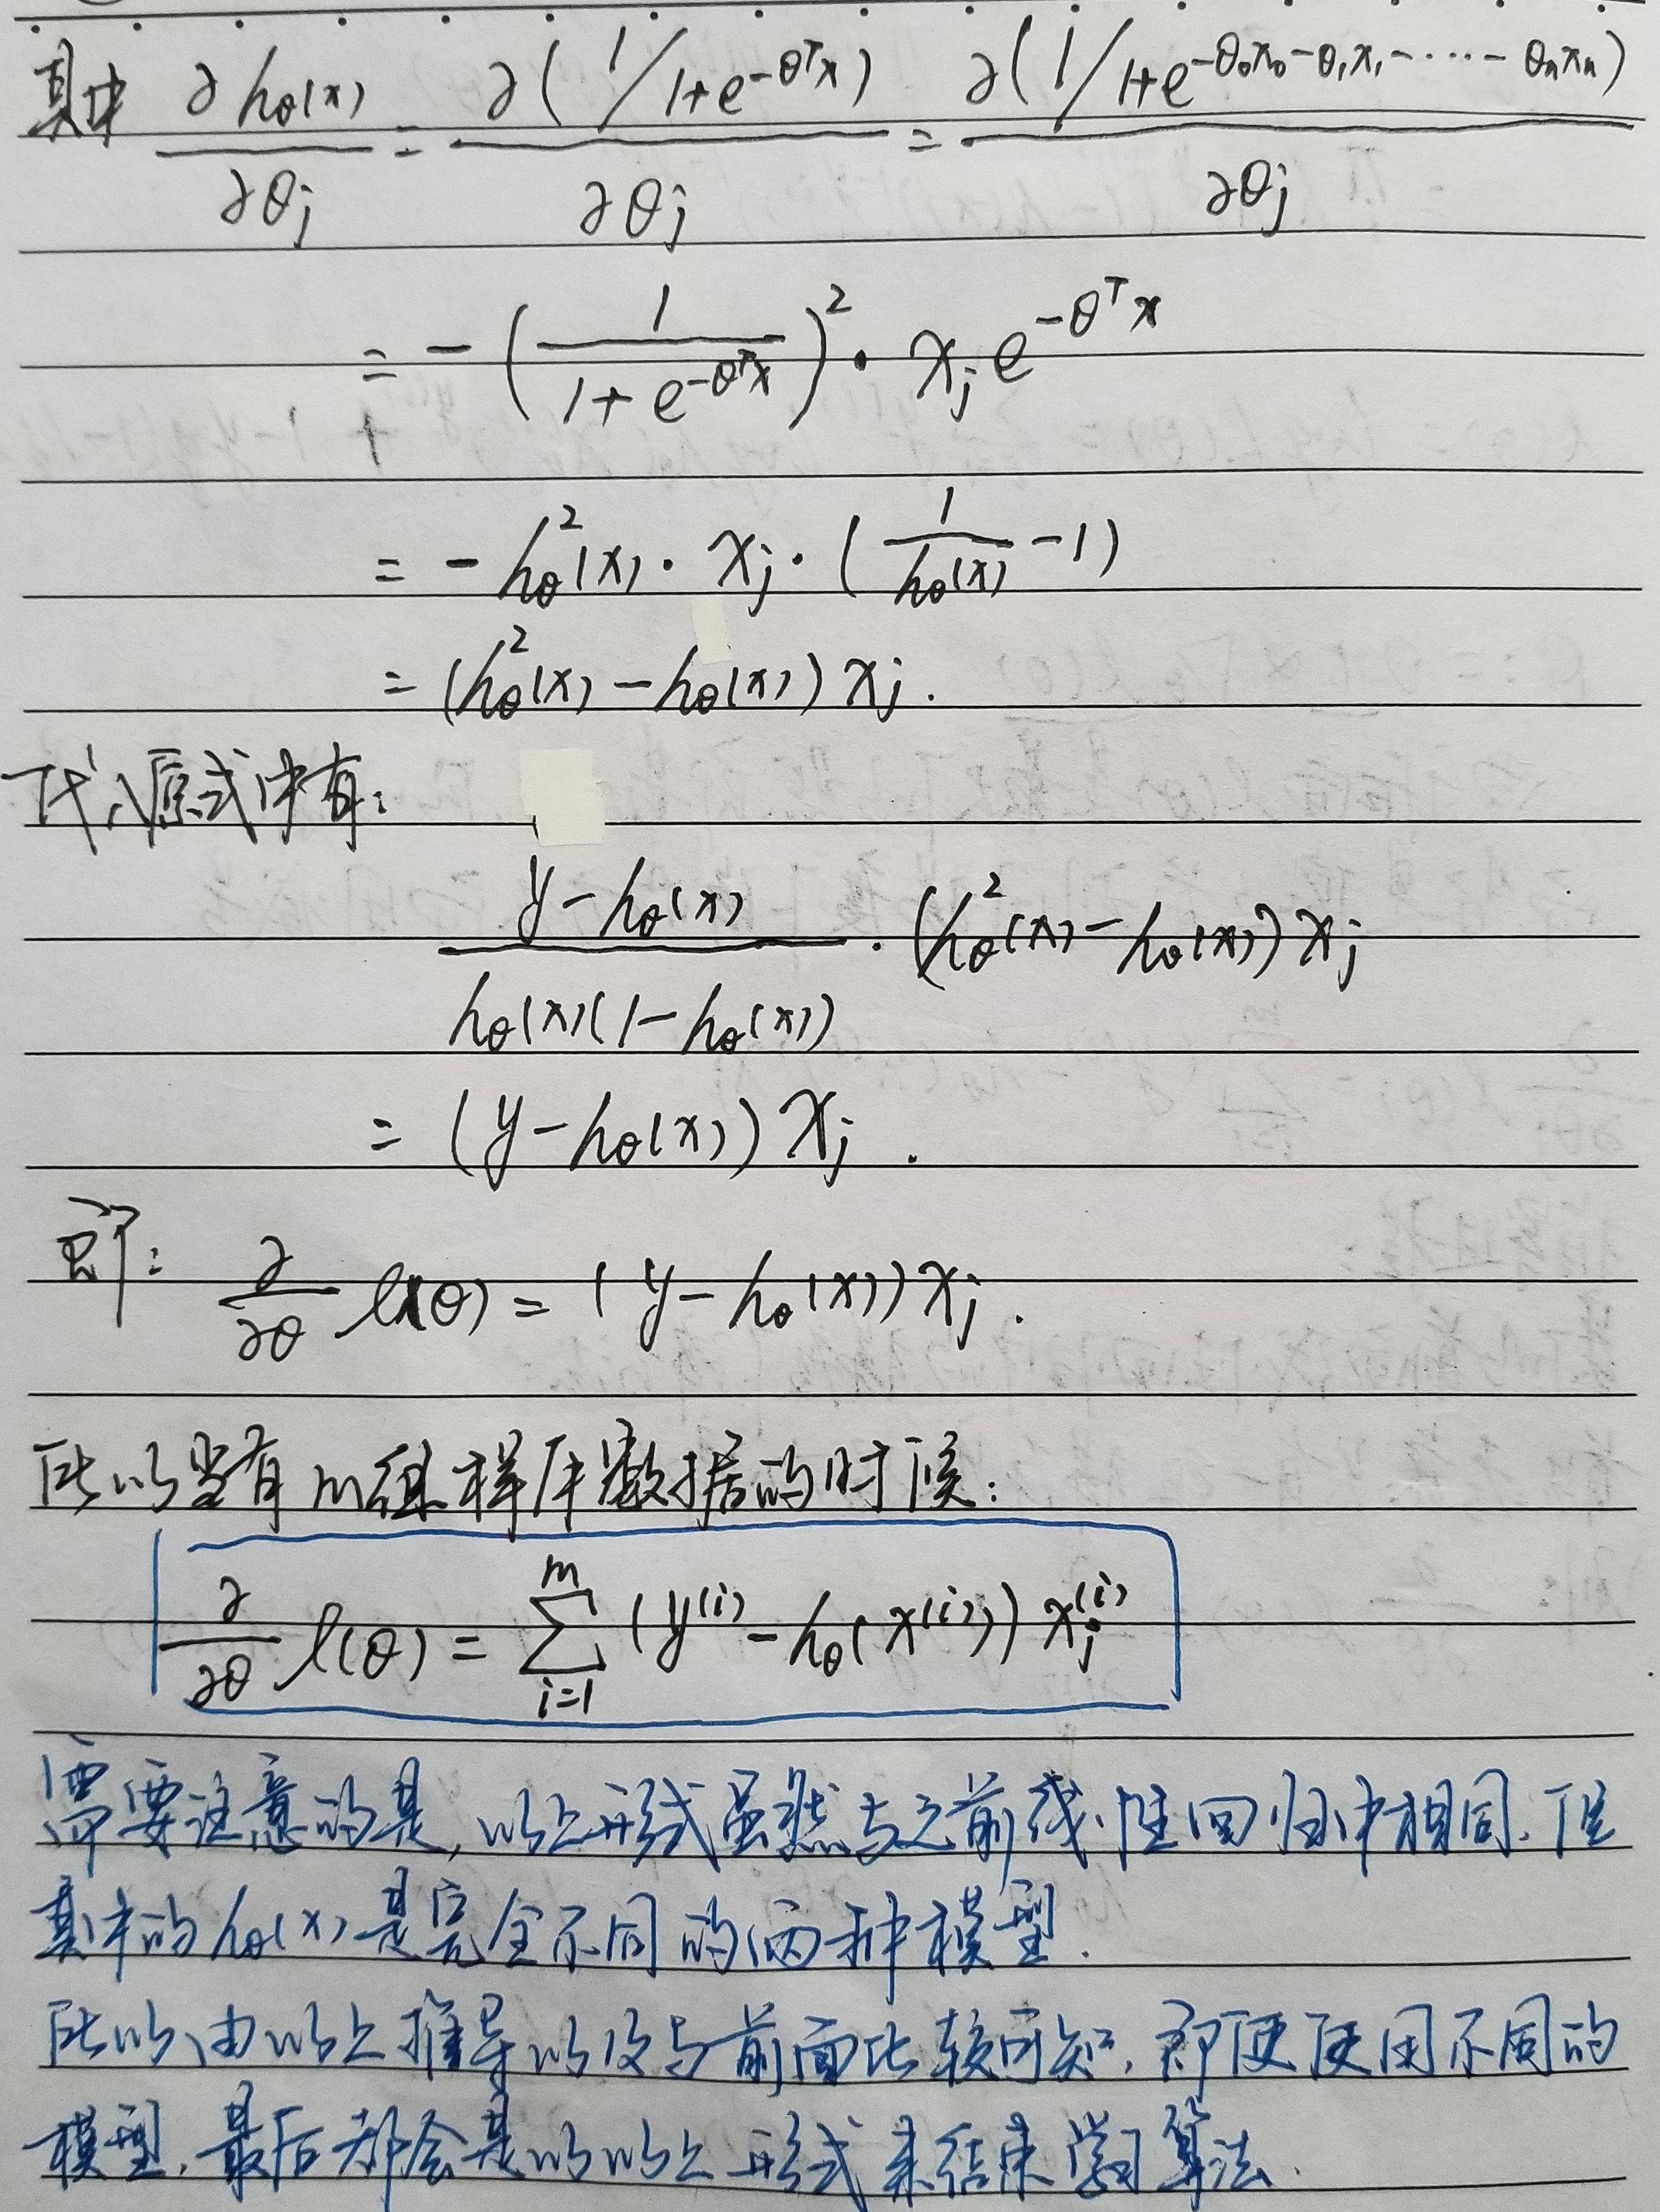 其中 ∂hθ(x)/∂θj = ∂(1/1+e^{-θ^T x})/∂θj = ∂(1/1+e^{-θ0x0-θ1x1-·····-θnxn})/∂θj
= -(1/(1+e^{-θ^T x}))^2 · xj e^{-θ^T x}
= -hθ^2(x) · xj · (1/hθ(x) -1)
= (hθ^2(x) - hθ(x)) xj.
代入原式中有:
(y-hθ(x))/(hθ(x)(1-hθ(x))) · (hθ^2(x) - hθ(x)) xj
= (y-hθ(x)) xj.
即: ∂/∂θ l(θ) = (y-hθ(x)) xj.
所以当有m组样本数据的时候:
∂/∂θ l(θ) = ∑_{i=1}^{m} (y^{(i)} - hθ(x^{(i)})) xj^{(i)}
需要注意的是,以上形式虽然与之前线性回归中相同.但
其中的hθ(x)是完全不同的两种模型.
所以由以上推导以及与前面比较可知,即便使用不同的
模型,最后都会是以以上形式来结束学习算法.